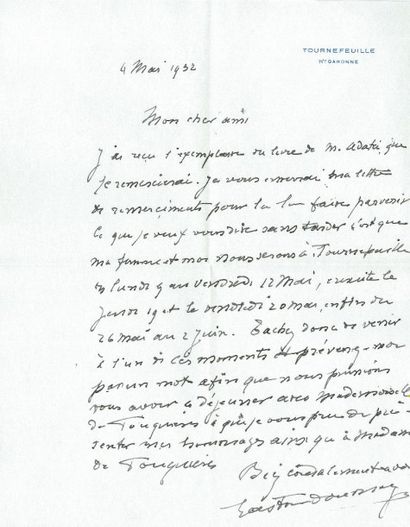 TOURNEFEUILLE
Hte GARONNE
4 Mai 1932
Mon cher ami
J'ai reçu l'exemplaire du livre de M. Adata que
je remercierai. Je vous enverrai ma lettre
de remerciments pour la lui faire parvenir
Ce que je veux vous dire sans tarder c'est que
ma femme et moi nous serons à Tournefeuille
du lundi 9 au vendredi 13 Mai, ensuite le
jeudi 19 et le vendredi 20 mai, enfin du
26 mai au 2 juin. Tachez donc de venir
à l'un de ces moments et prévenez-moi
par un mot afin que nous puissions
vous avoir à déjeuner avec Mademoiselle
de Fouquières à qui je vous prie de pré-
senter mes hommages ainsi qu'à Madame
de Fouquières
Bien cordialement à vous
Gaston Doumergue